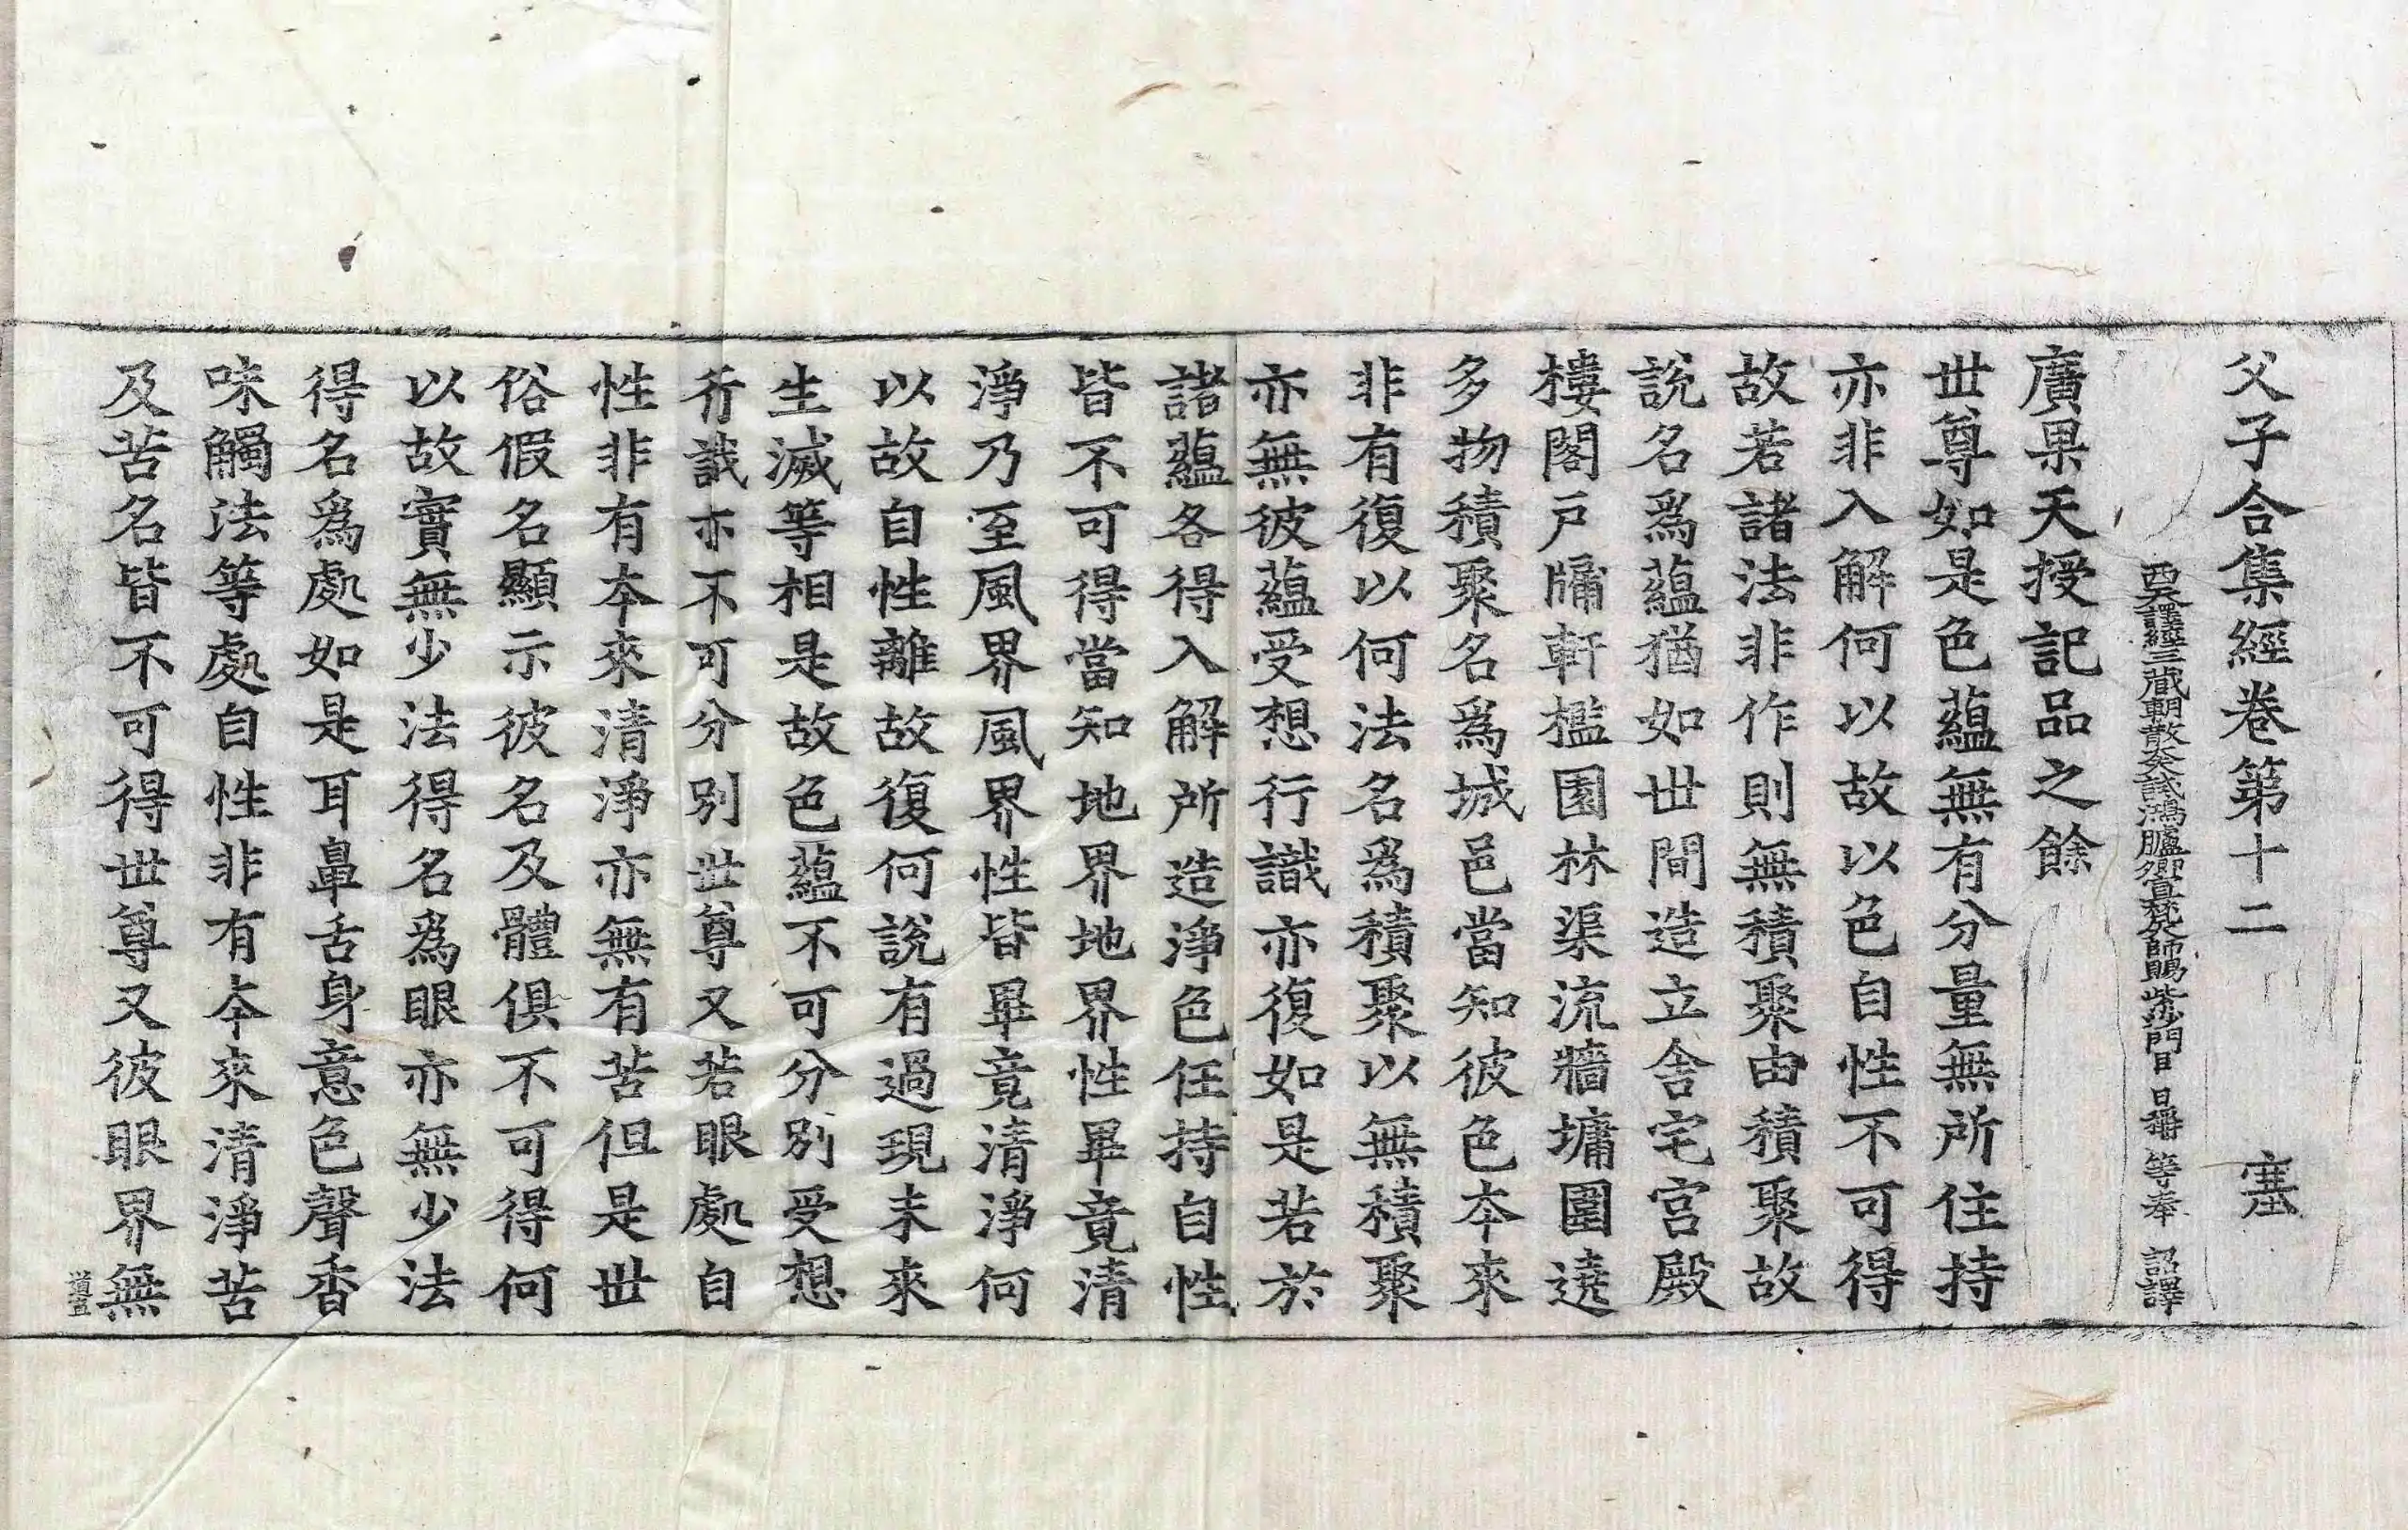 父子合集經卷第十二 塞
西天譯經三藏朝散大夫試鴻臚卿宣梵大師賜紫沙門臣 日稱 等奉 詔譯
廣果天授記品之餘
世尊如是色蘊無有分量無所住持
亦非入解何以故以色自性不可得
故若諸法非作則無積聚由積聚故
說名爲蘊猶如世間造立舍宅宮殿
樓閣戶牗軒檻園林渠流牆墉圍遶
多物積聚名爲城邑當知彼色本來
非有復以何法名爲積聚以無積聚
亦無彼蘊受想行識亦復如是若於
諸蘊各得入解所造淨色任持自性
皆不可得當知地界地界性畢竟清
淨乃至風界風界性皆畢竟清淨何
以故自性離故復何說有過現未來
生滅等相是故色蘊不可分別受想
行識亦不可分別世尊又若眼處自
性非有本來清淨亦無有苦但是世
俗假名顯示彼名及體俱不可得何
以故實無少法得名爲眼亦無少法
得名爲處如是耳鼻舌身意色聲香
味觸法等處自性非有本來清淨苦
及苦名皆不可得世尊又彼眼界無